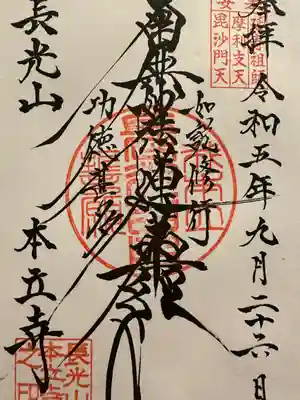 奉拝 令和五年九月二十六日
祖師
摩利支天
毘沙門天
如説修行
南無妙法蓮華経
功徳甚多
長光山 本立寺
長光山
本立寺
之印